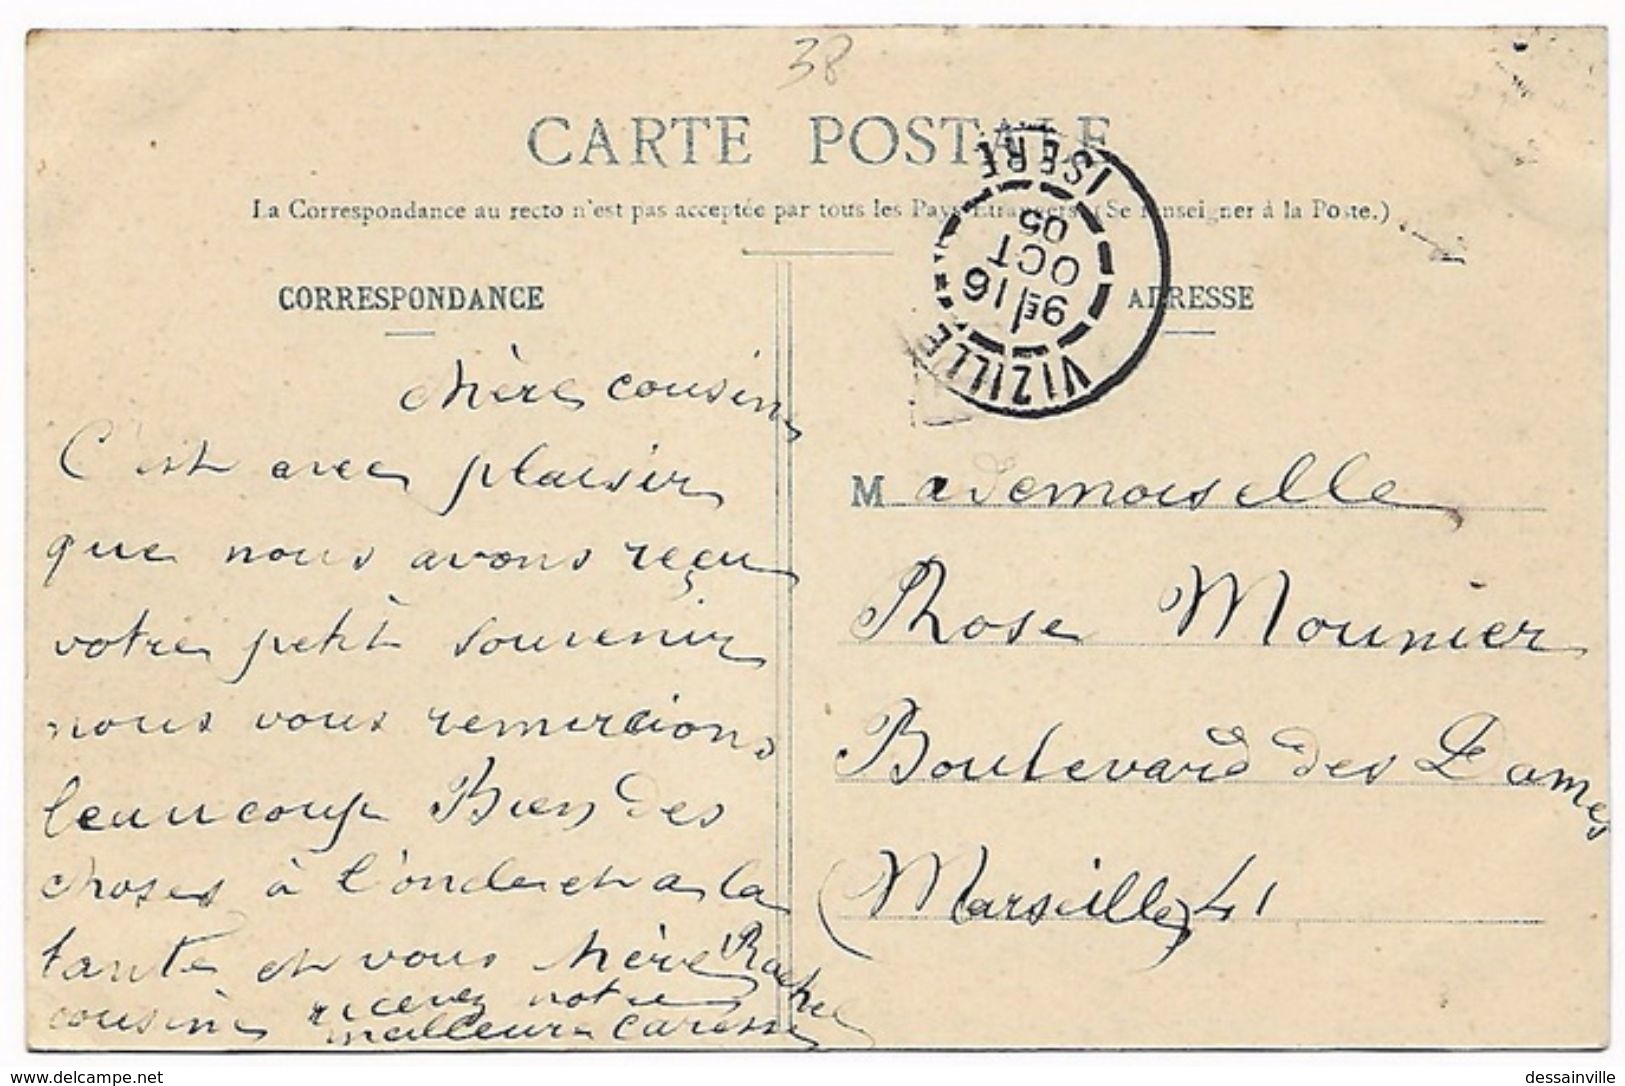 38
CARTE POSTALE
La Correspondance au recto n'est pas acceptée par tous les Pays Etrangers. (Se renseigner à la Poste.)
CORRESPONDANCE
ADRESSE
VIZILLE
9E/16
OCT
05
ISERE
chère cousine
C'est avec plaisir
que nous avons reçu
votre petit souvenir
nous vous remercions
beaucoup Bien des
choses à l'oncle et a la
tante et vous chère
cousine recevez notre
meilleure caresse
Rachel
Mademoiselle
Rose Mounier
Boulevard des Dames
(Marseille) 41
delcampe.net
dessainville